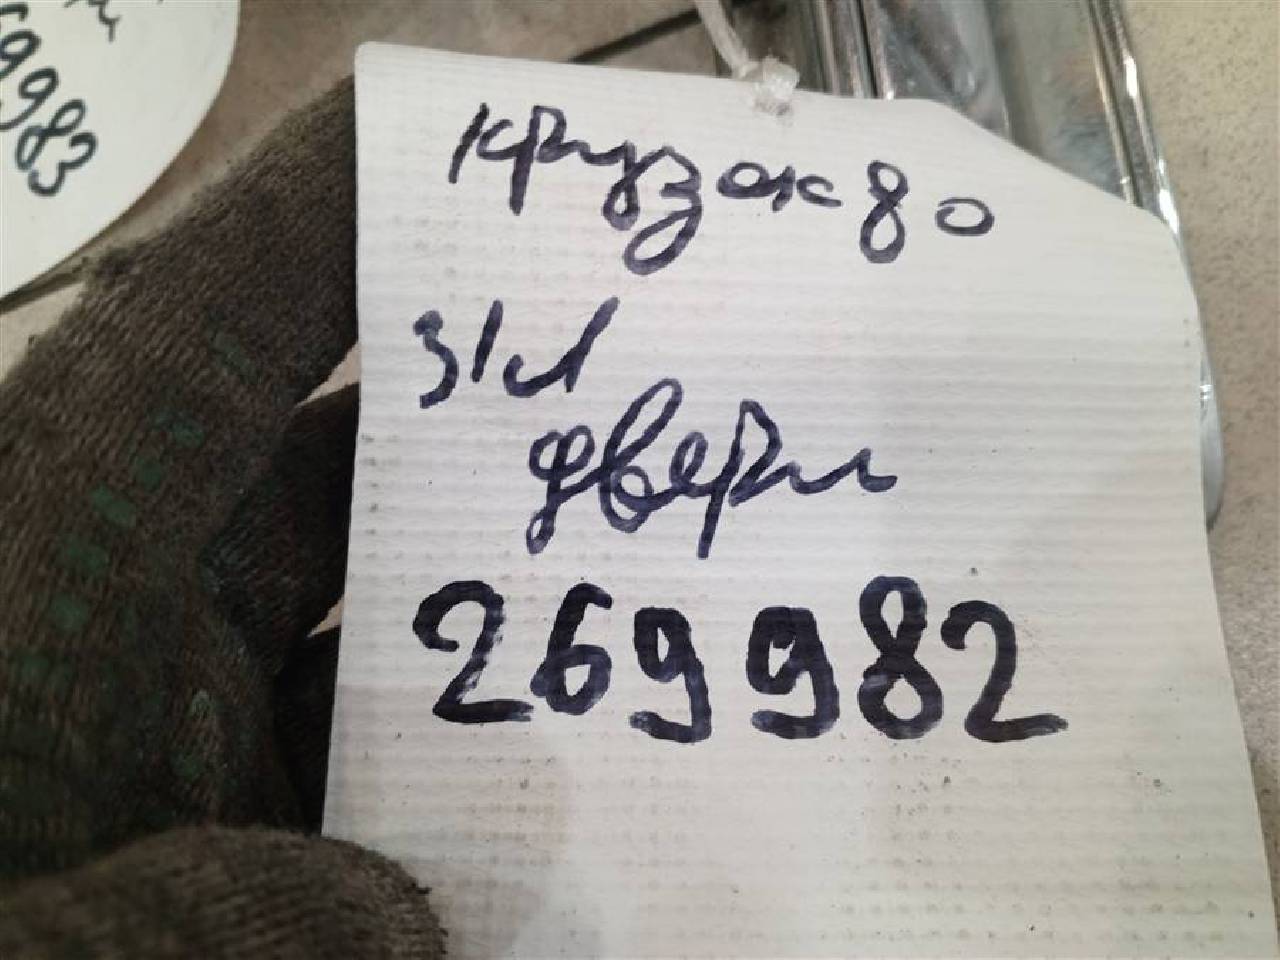 69983
крузак 80
з/л
двери
269982